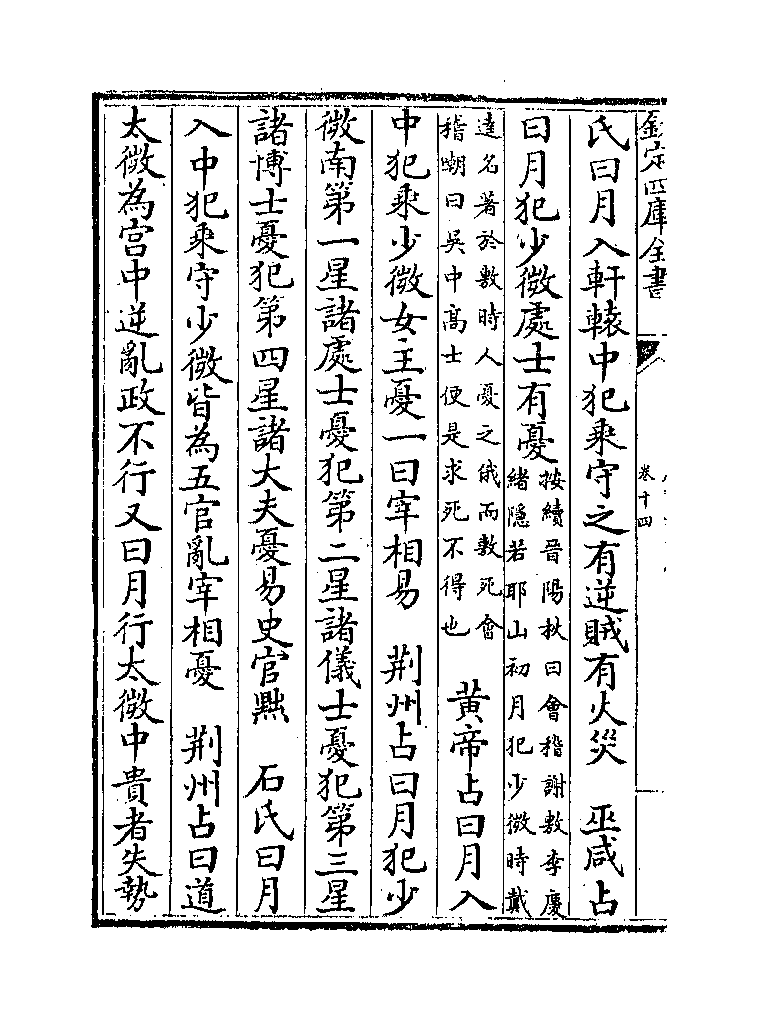 欽定四庫全書
卷十四
氏曰月入軒轅中犯乘守之有逆賊有火災　巫咸占
曰月犯少微處士有憂按續晉陽秋曰會稽謝敷字慶
緒隱若耶山初月犯少微時戴
達名著於敷時人憂之俄而敷死會
稽嘲曰吳中高士便是求死不得也　黃帝占曰月入
中犯乘少微女主憂一曰宰相易　荆州占曰月犯少
微南第一星諸處士憂犯第二星諸儀士憂犯第三星
諸博士憂犯第四星諸大夫憂易史官黜　石氏曰月
入中犯乘守少微皆為五官亂宰相憂　荆州占曰道
太微為宫中逆亂政不行又曰月行太微中貴者失勢